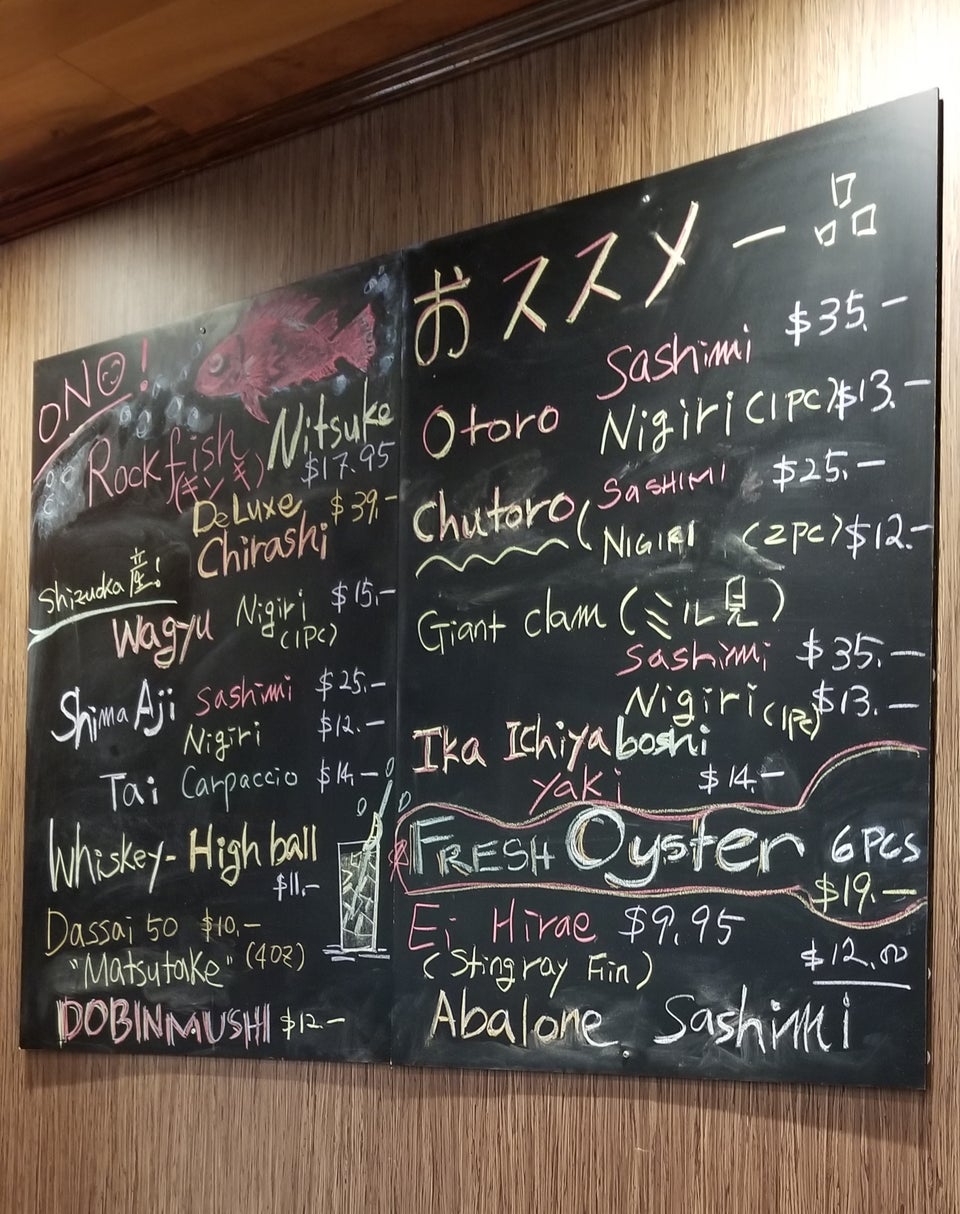 ONO!
Rockfish Nitsuke
(キンキ) $17.95
DeLuxe $39.-
Chirashi
Shizuoka産!
Wagyu Nigiri $15.-
(1PC)
Shima Aji Sashimi $25.-
Nigiri $12.-
Tai Carpaccio $14.-
Whiskey- High ball
$11.-
Dassai 50 $10.-
"Matsutake" (4oz)
DOBINMUSHI $12-
おススメ一品
Sashimi $35.-
Otoro Nigiri (1PC) $13.-
Chutoro Sashimi $25.-
( NIGIRI (2PC) $12.-
Giant clam (ミル見)
Sashimi $35.-
Nigiri (1PC) $13.-
Ika Ichiyaboshi
yaki $14.-
FRESH Oyster 6PCS
$19.-
Ei Hirae $9.95
(Stingray Fin) $12.00
Abalone Sashimi